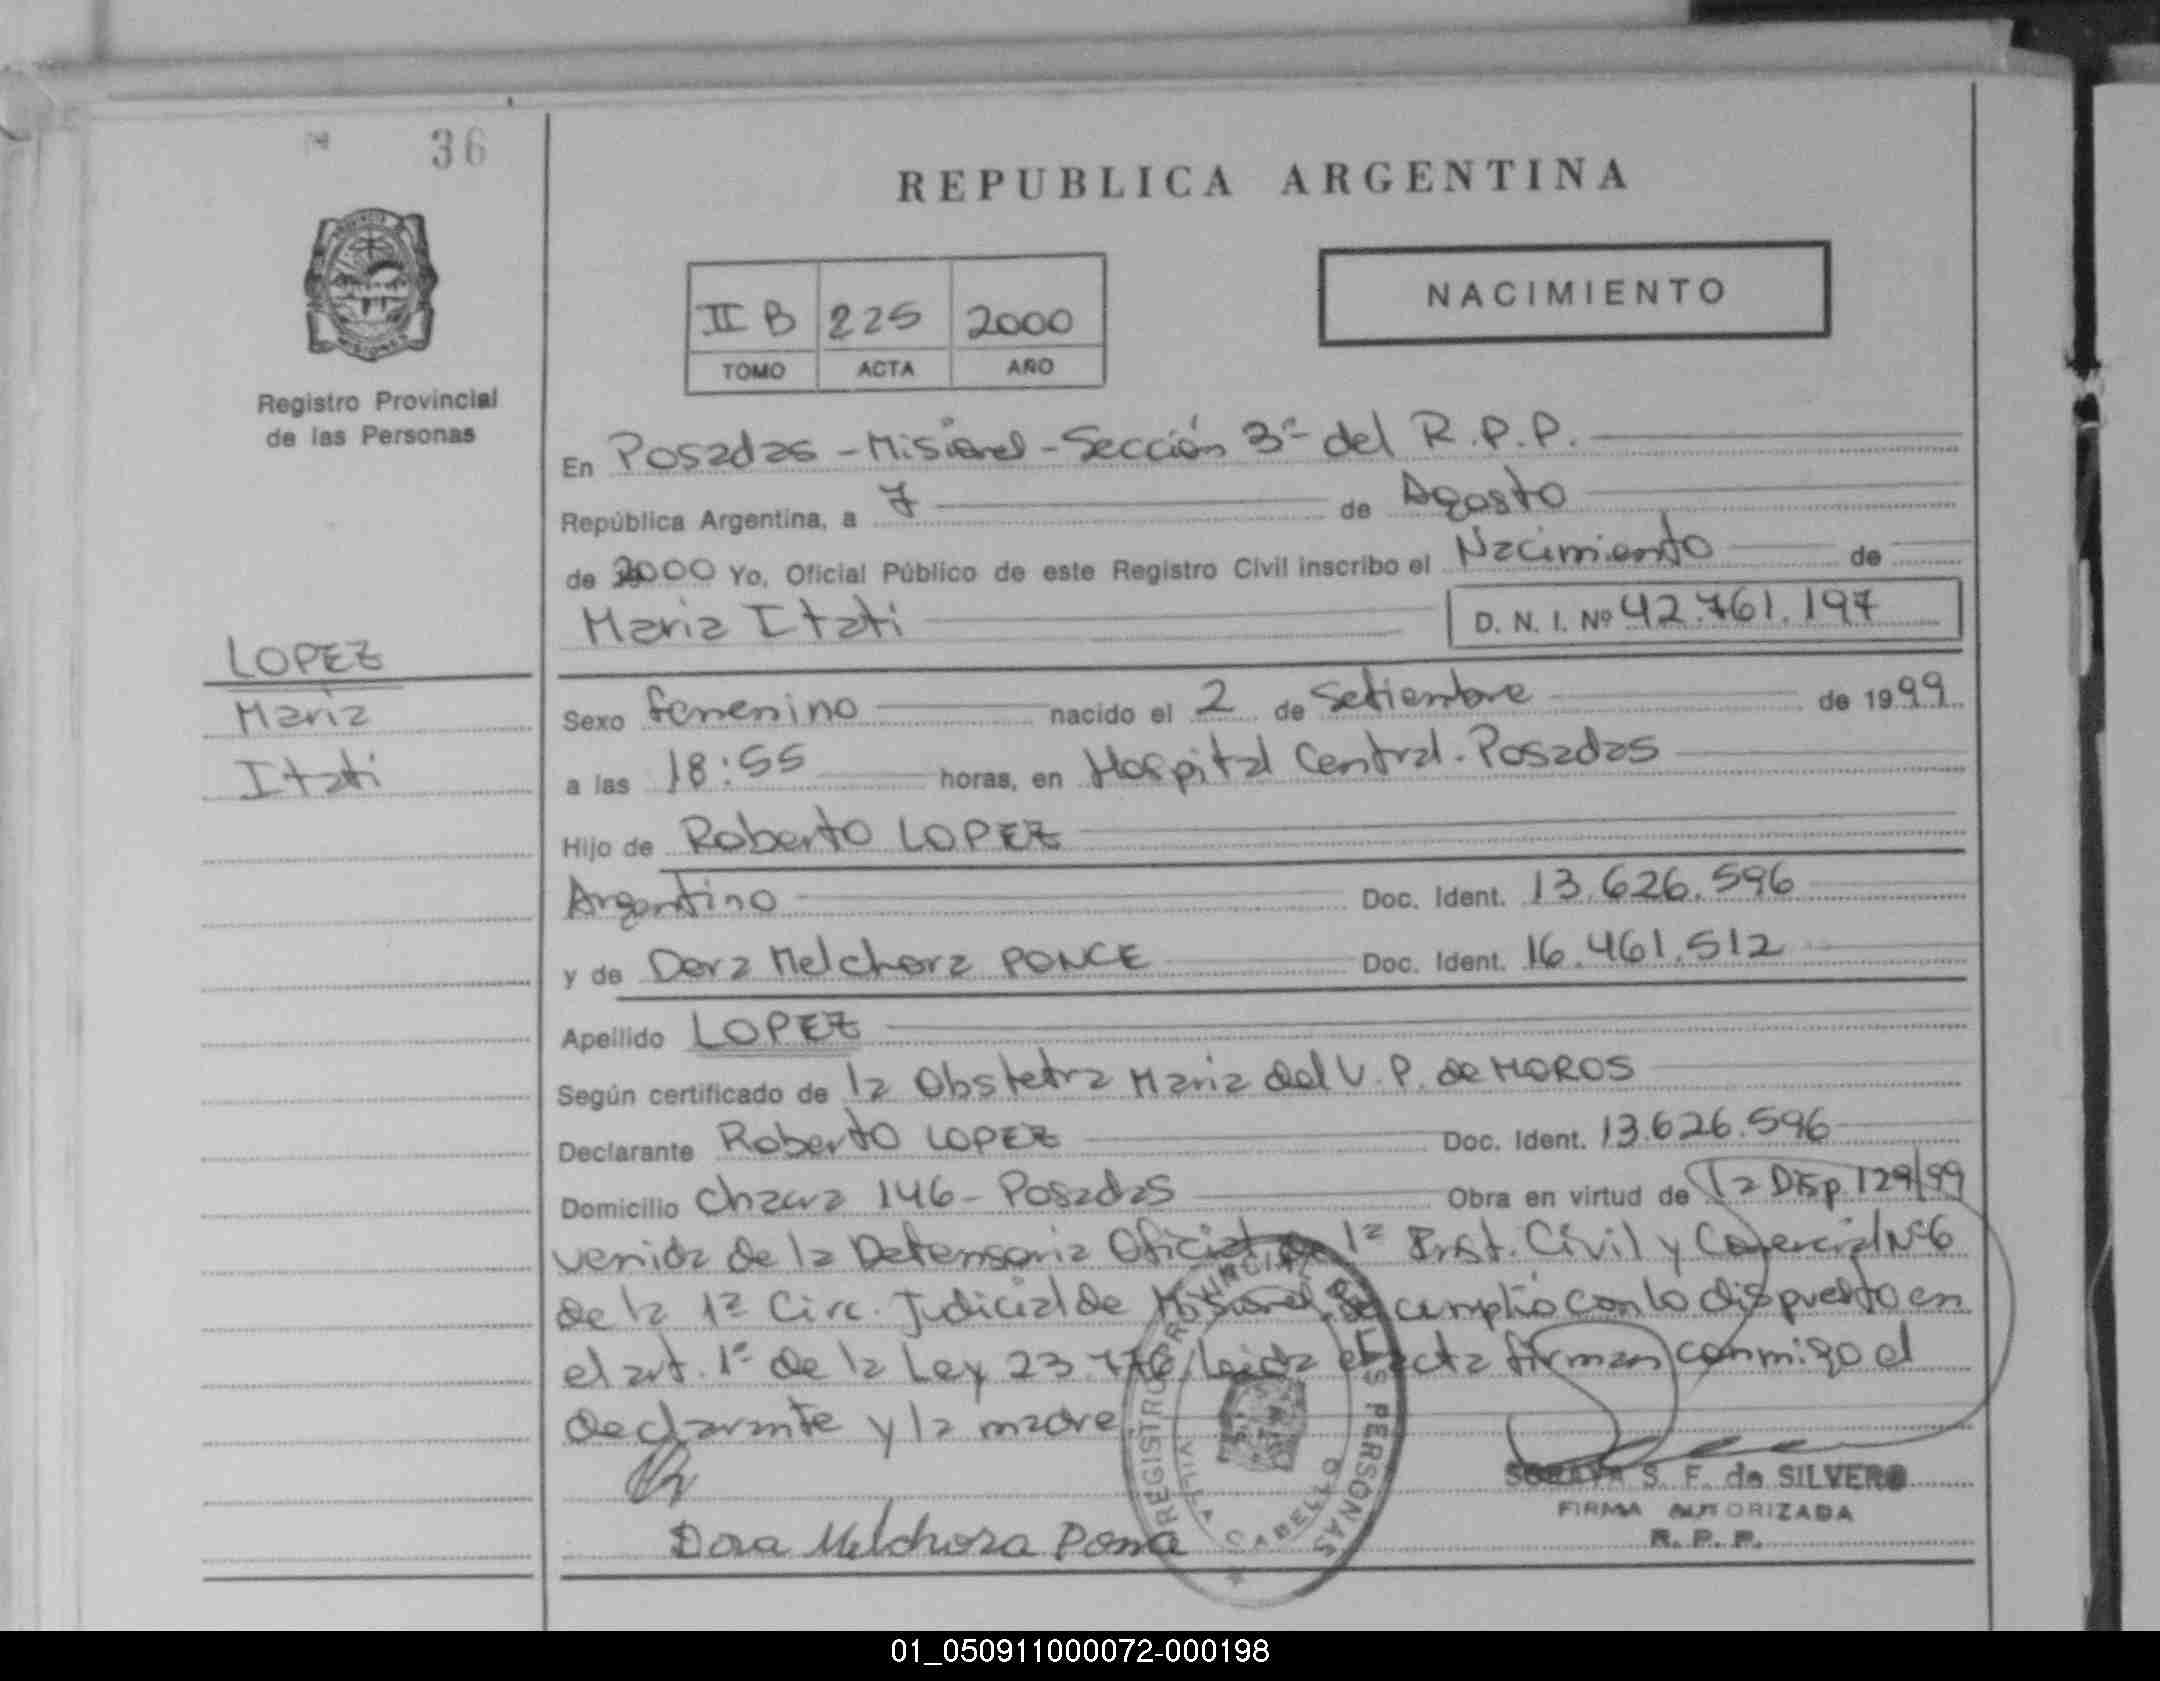 36
REPUBLICA ARGENTINA
PROVINCIA
MISIONES
Registro Provincial
de las Personas
II B 225 2000
TOMO ACTA AÑO
NACIMIENTO
En Posadas - Misiones - Sección 3ª del R.P.P.
República Argentina, a 7 de Agosto
de 2000 Yo, Oficial Público de este Registro Civil inscribo el Nacimiento de
Maria Itati D. N. I. Nº 42.761.197
LOPEZ
Maria
Itati
Sexo femenino nacido el 2 de Setiembre de 1999
a las 18:55 horas, en Hospital Central. Posadas
Hijo de Roberto LOPEZ
Argentino Doc. Ident. 13.626.596
y de Dora Melchora PONCE Doc. Ident. 16.461.512
Apellido LOPEZ
Según certificado de la Obstetra Maria del V. P. de MOROS
Declarante Roberto LOPEZ Doc. Ident. 13.626.596
Domicilio Chacra 146 - Posadas Obra en virtud de la Disp. 129/99
venida de la Defensoria Oficial de 1ª Inst. Civil y Comercial Nº 6
de la 1ª Circ. Judicial de Misiones. Se cumplió con lo dispuesto en
el art. 1º de la Ley 23.776, leida el acta firman conmigo el
declarante y la madre
Dora Melchora
REGISTRO PROVINCIAL DE LAS PERSONAS
VILLA CABELLO
SORAYA S. F. de SILVERO
FIRMA AUTORIZADA
R. P. P.
01_050911000072-000198